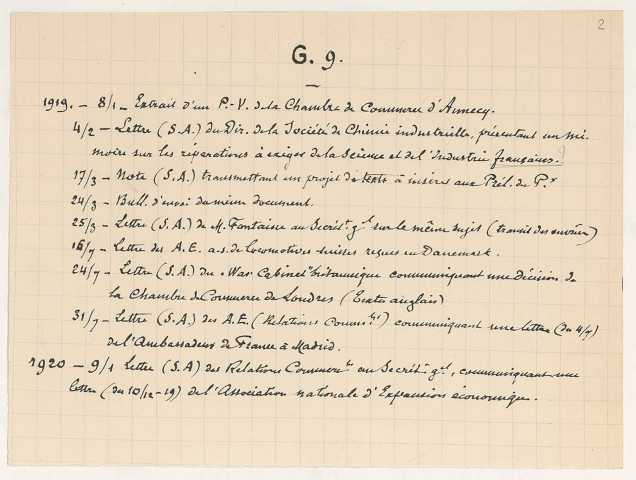 2
G. 9.
1919. – 8/1 – Extrait d'un P.-V. de la Chambre de Commerce d'Annecy.
4/2 – Lettre (S.A.) du Dir. de la Société de Chimie industrielle, présentant un mé-
moire sur les réparations à exiger de la Science et de l'Industrie françaises.
17/3 – Note (S.A.) transmettant un projet de texte à insérer aux Prél. de P.x
24/3 – Bull. d'envoi du même document.
25/3 – Lettre (S.A.) de M. Fontaine au Secrét. gal sur le même sujet (transit des)
16/7 – Lettre des A.E. a.s. de locomotives suisses reçues en Danemark.
24/7 – Lettre (S.A.) du "War Cabinet" britannique communiquant une décision de
la Chambre de Commerce de Londres (Texte anglais)
31/7 – Lettre (S.A.) des A.E. (Relations Commles) communiquant une lettre (du 4/7)
de l'Ambassadeur de France à Madrid.
1920 – 9/1 Lettre (S.A) des Relations Commerles au Secrét. gal, communiquant une
lettre (du 10/12-19) de l'Association nationale d'Expansion économique.